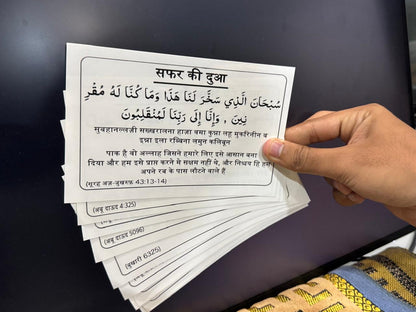 सफर की दुआ
سُبْحَانَ الَّذِي سَخَّرَ لَنَا هَذَا وَمَا كُنَّا لَهُ مُقْرِ
نِينَ , وَإِنَّا إِلَى رَبِّنَا لَمُنْقَلِبُونَ
सुबहानल्लज़ी सख्खरालना हाज़ा वमा कुन्ना लहू मुक़रिनीन व
इन्ना इला रब्बिना लमुन कलिबून
पाक है वो अल्लाह जिसने हमारे लिए इसे आसान बना
दिया और हम इसे प्राप्त करने मे सक्षम नहीं थे, और निश्चय हि हम
अपने रब के पास लौटने वाले हैं
(सूरह अज़-ज़ुखरुफ़ 43:13-14)
(अबू दाऊद 4:325)
(अबू दाऊद 5096)
(बुखारी 6325)